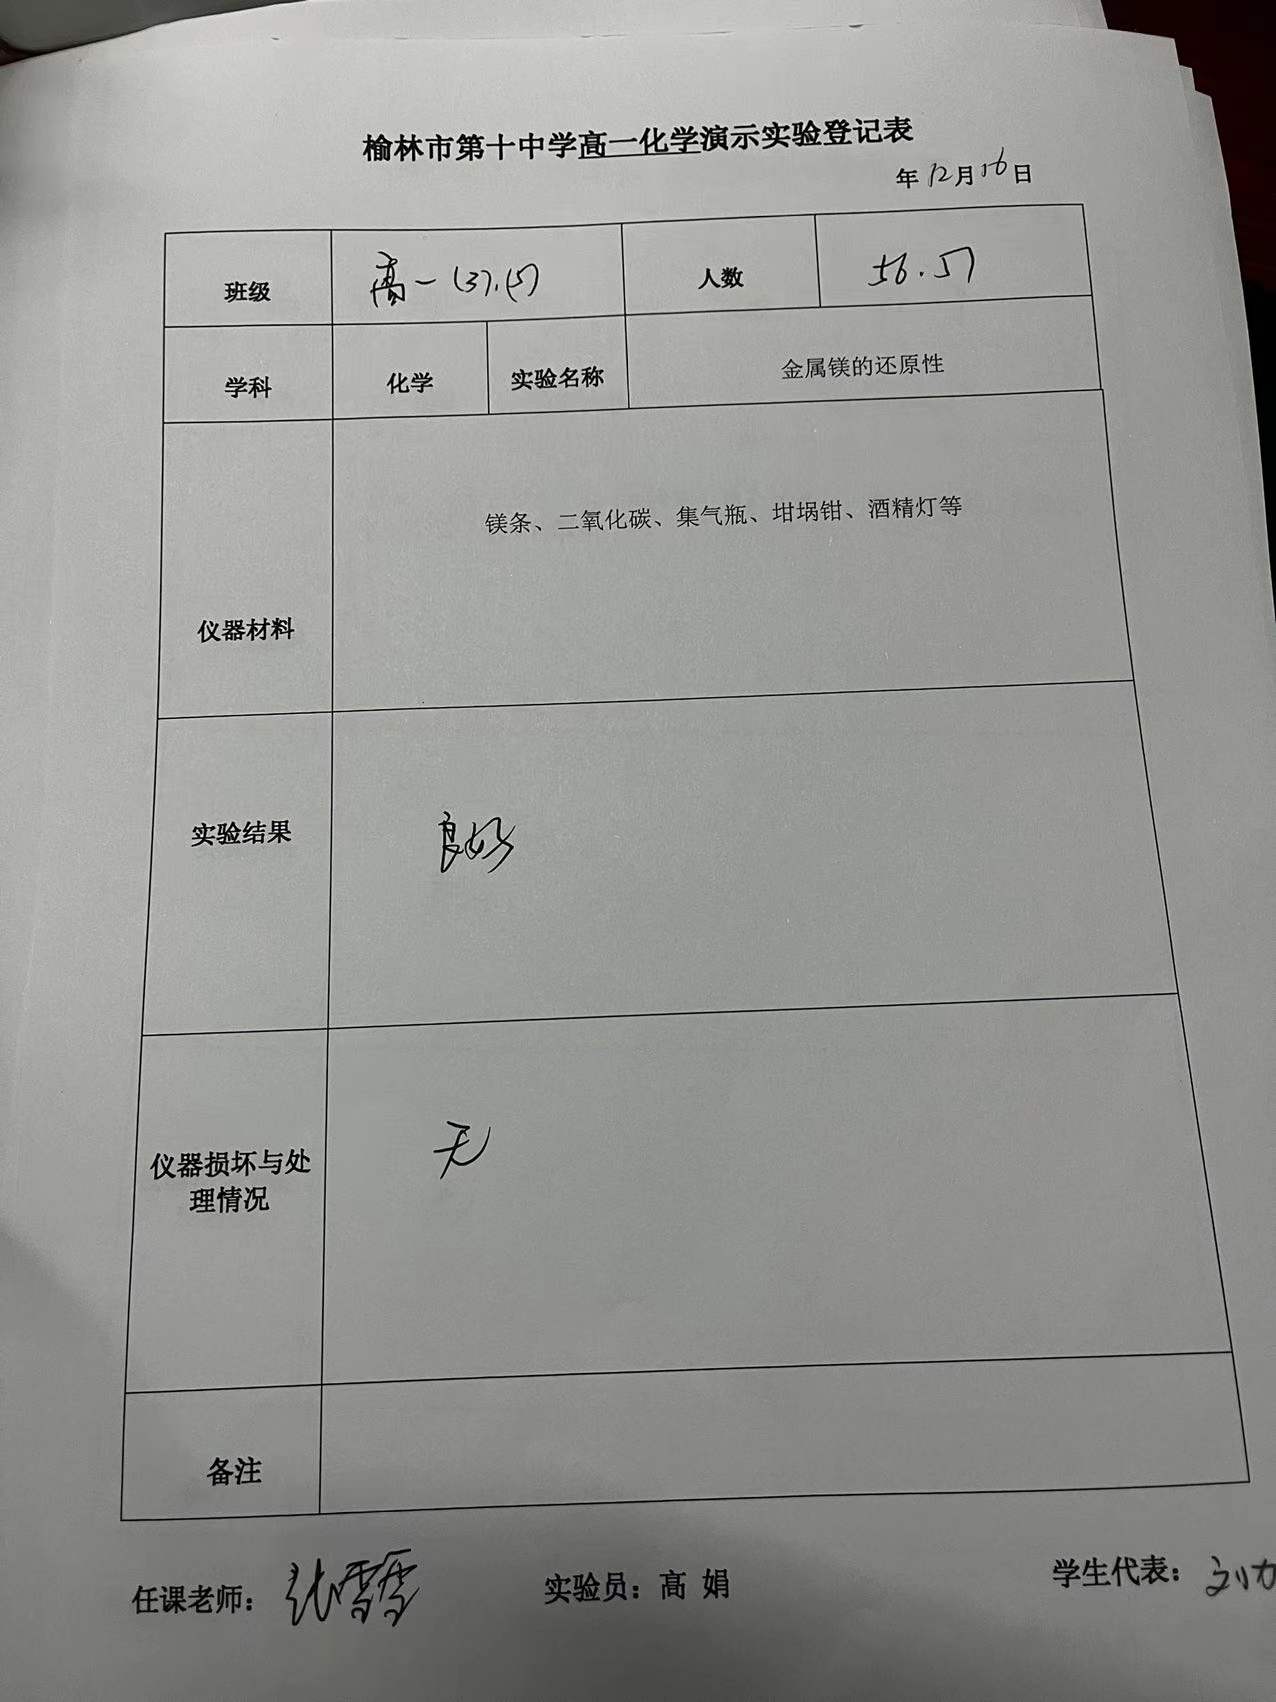 榆林市第十中学高一化学演示实验登记表
年12月16日
班级 高一(3).(5) 人数 56.57
学科 化学 实验名称 金属镁的还原性
镁条、二氧化碳、集气瓶、坩埚钳、酒精灯等
仪器材料
实验结果 良好
仪器损坏与处
理情况
无
备注
任课老师：张雪雪 实验员：高 娟 学生代表：刘